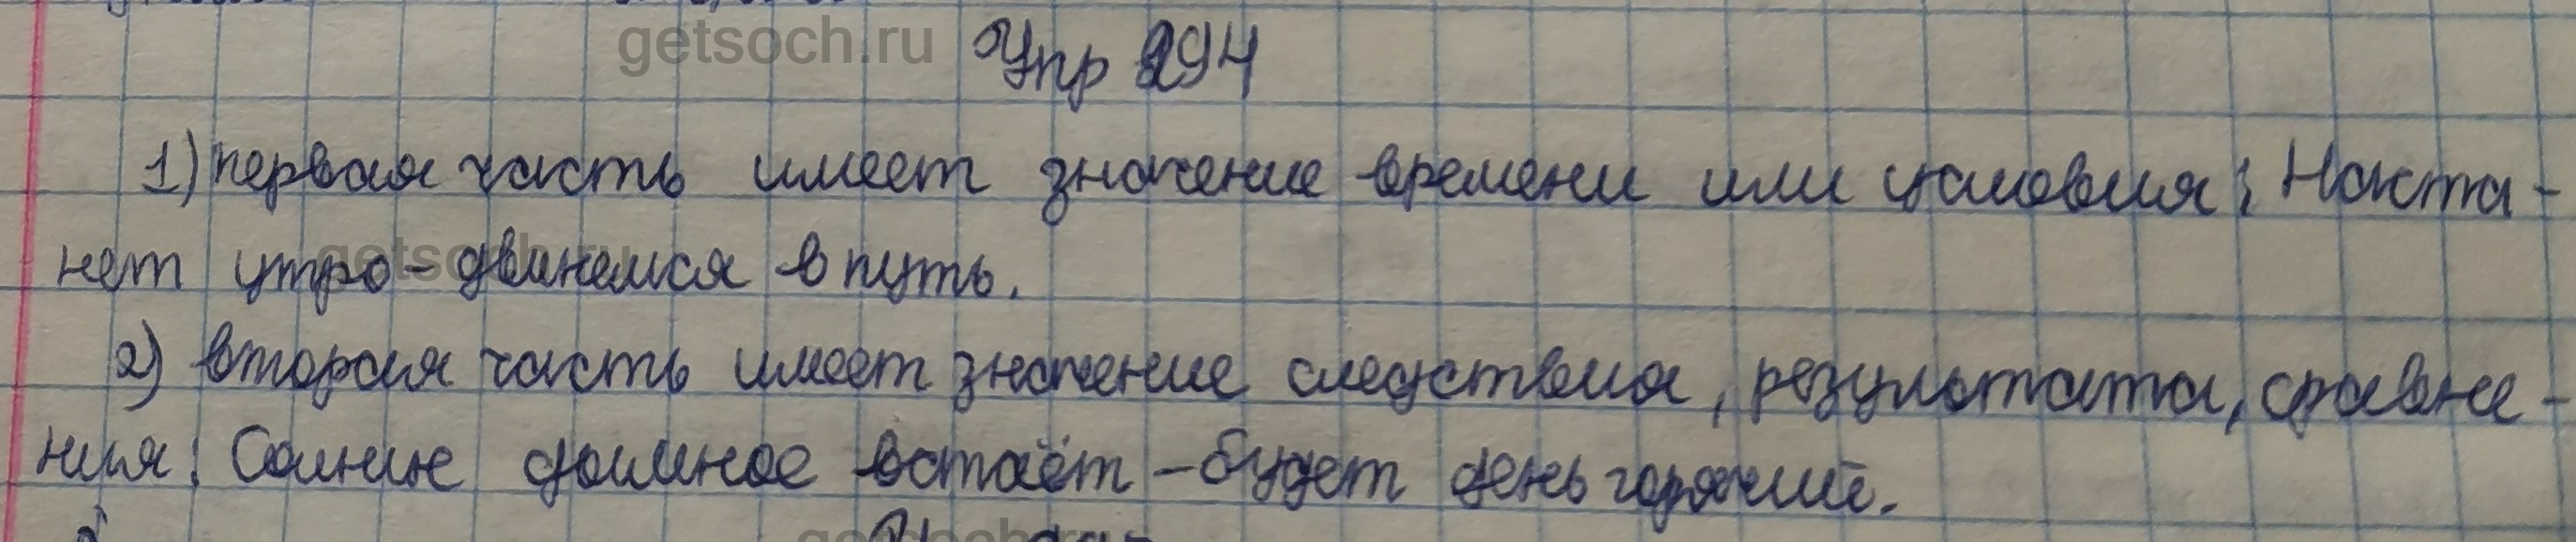 getsoch.ru
Упр 294
1) первая часть имеет значение времени или условия: Наста-
нет утро - двинемся в путь.
getsoch.ru
2) вторая часть имеет значение следствия, результата, сравне-
ния: Солнце дымное встаёт - будет день горячий.
getsoch.ru